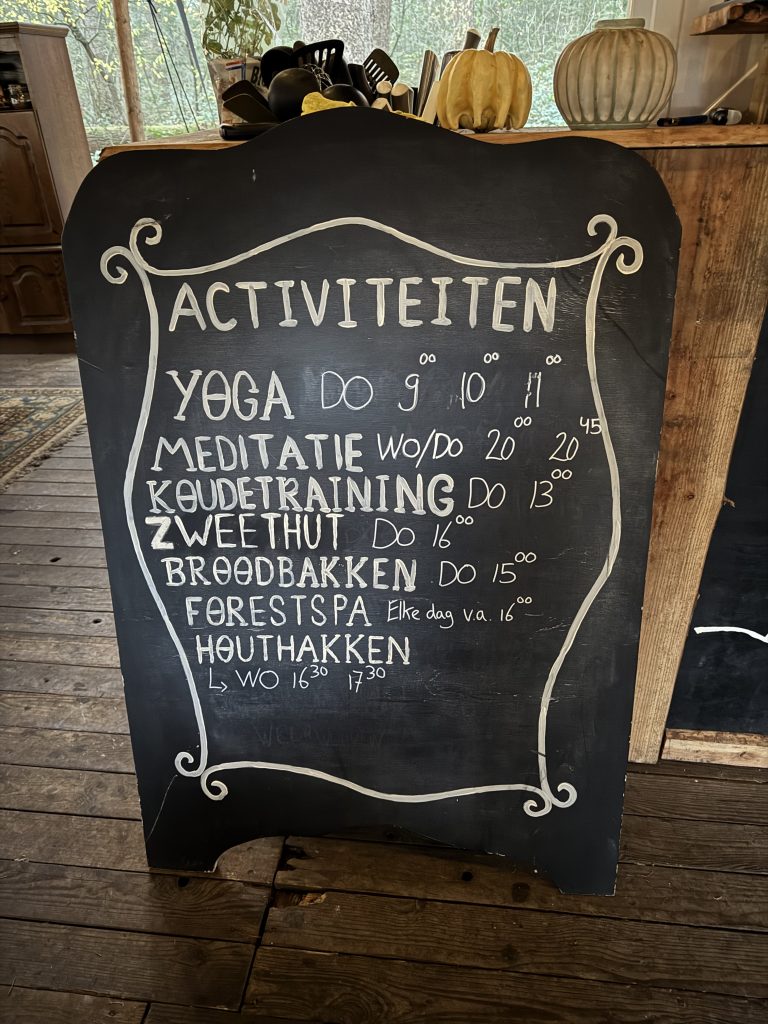 ACTIVITEITEN
YOGA DO 9⁰⁰ 10⁰⁰ 11⁰⁰
MEDITATIE WO/DO 20⁰⁰ 20⁴⁵
KOUDETRAINING DO 13⁰⁰
ZWEETHUT DO 16⁰⁰
BROODBAKKEN DO 15⁰⁰
FORESTSPA Elke dag v.a. 16⁰⁰
HOUTHAKKEN
↳ WO 16³⁰ 17³⁰